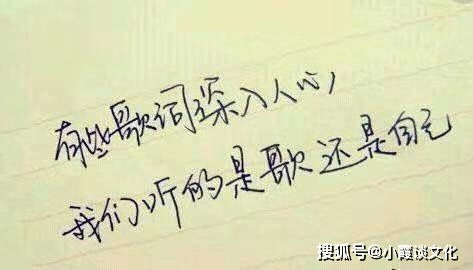 有些歌词深入人心,
我们听的是歌还是自己
搜狐号@小霞谈文化